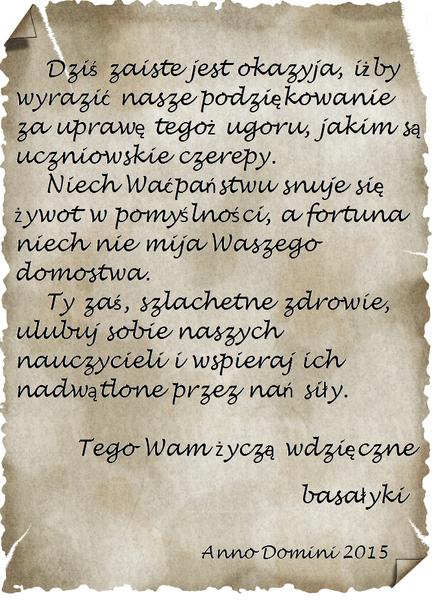 Dziś zaiste jest okazyja, iżby
wyrazić nasze podziękowanie
za uprawę tegoż ugoru, jakim są
uczniowskie czerepy.
Niech Waćpaństwu snuje się
żywot w pomyślności, a fortuna
niech nie mija Waszego
domostwa.
Ty zaś, szlachetne zdrowie,
ulubuj sobie naszych
nauczycieli i wspieraj ich
nadwątlone przez nań siły.
Tego Wam życzą wdzięczne
basałyki
Anno Domini 2015